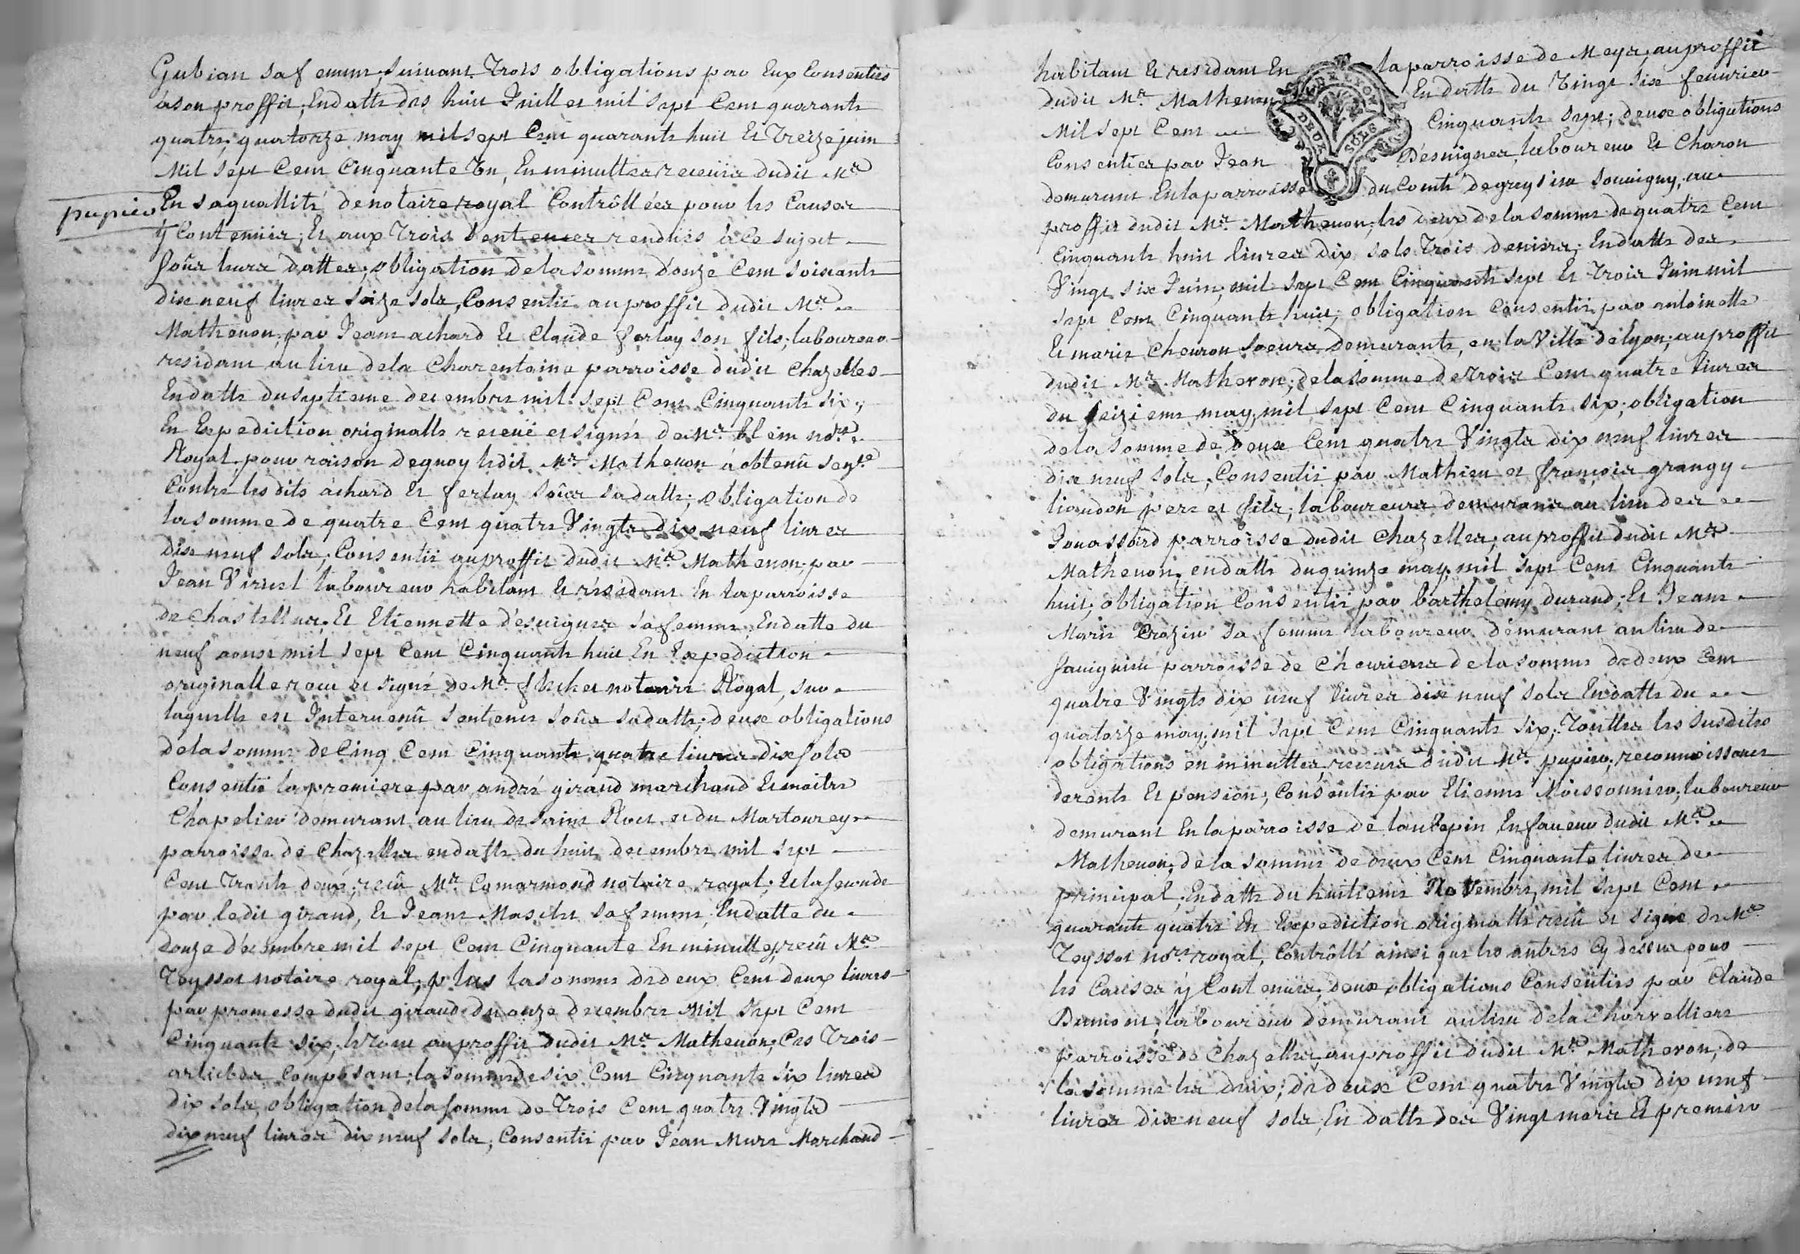 Gubian sa femme, suivant Trois obligations par Eux Consenties
à son proffit, En datte des huit Juillet mil sept Cent quarante
quatre, quatorze may mil sept Cent quarante huit Et Treize juin
Mil sept Cent Cinquante Un, En minuttes receüir dudit Mr.
pupier
En sa quallité de notaire royal Contrôllées pour les Causes
y Contenües, Et aux Trois Sentences rendües à ce sujet
soûs leurs dattes; obligation de la somme d'onze Cent soixante
dix neuf livres seize sols, Consentie au proffit dudit Mr.
Mathevon, par Jean achard Et Claude ferlay son fils, laboureur
residant au lieu de la Charentaine parroisse dudit Chazelles
En datte du septieme decembre mil sept Cent Cinquante six,
En Expediction originalle receüe et signée de Mr. blein nore.
Royal, pour raison de quoy ledit Mr. Mathevon à obtenû sence.
Contre lesdits achard Et ferlay soûs sa datte; obligation de
la somme de quatre Cent quatre Vingts dix neuf livres
dix neuf sols, Consentie au proffit dudit Mre. Mathevon, par
Jean Viruel laboureur habitant Et résidant En la parroisse
de Chastellus, Et Etiennette désvignes sa femme, En datte du
neuf aoust mil sept Cent Cinquante huit En Expediction
originalle receu et signé de Mr. notaire Royal, sur
laquelle est Intervenû sentence soûs sa datte; deux obligations
de la somme de Cinq Cent Cinquante quatre livres dix sols
Consentie la premiere par andré giraud marchand Et maitre
Chapelier demurant au lieu de saint Roch et du Martourey
parroisse de Chazelles en datte du huit decembre mil sept
Cent Trente deux, reçû Mr. Comarmond notaire royal, Et la seconde
par ledit giraud, Et Jeane Masclet sa femme, En datte du
douze décembre mil sept Cent Cinquante En minutte, reçû Mr.
Toyssot notaire royal, plus la somme de deux Cent deux livres
par promesse dudit giraud du onze decembre mil sept Cent
Cinquante six, le Tout au proffit dudit Mr. Mathevon, Ces Trois
articles Composant la somme de six Cent Cinquante six livres
dix sols, obligation de la somme de Trois Cent quatre Vingts
dix neuf livres dix neuf sols, Consentie par Jean Mure Marchand
habitant Et residant En la parroisse de Meys, au proffit
dudit Mr. Mathevon En datte du Vingt sixe. feuvrier
Mil sept Cent Cinquante sept; deux obligations
Consenties par Jean Désvignes, laboureur Et Charon
demurant En la parroisse du Comté de greysieu souvigny, au
proffit dudit Mr. Mathevon, les deux de la somme de quatre Cent
Cinquante huit livres dix sols Trois deniers, En datte des
Vingt six Juin, mil sept Cent Cinquante sept Et Trois Juin mil
sept Cent Cinquante huit; obligation Consentie par antoinette
Et marie Chevron soeurs demurants, en la Ville de lyon, au proffit
dudit Mr. Mathevon, de la somme de Trois Cent quatre livres
du seizieme may, mil sept Cent Cinquante six; obligation
de la somme de deux Cent quatre Vingts dix neuf livres
dix neuf sols, Consentie par Mathieu et françois grangy
liaudon pere et fils, laboureurs demurants au lieu des
Jouassord parroisse dudit Chazelles, au proffit dudit Mre.
Mathevon, en datte du quinze may, mil sept Cent Cinquante
huit; obligation Consentie par barthelemy durand, Et Jeane
Marie Crozier sa femme laboureur demurant au lieu de
Sauignieu parroisse de Chevrieres de la somme de deux Cent
quatre Vingts dix neuf livres dix neuf sols En datte du
quatorze may, mil sept Cent Cinquante six, Touttes les susdites
obligations en minuttes receues dudit Mr. pupier, reconnoissances
de rente Et pension, Consentie par Etienne Moissonnier, laboureur
demurant En la parroisse de l'aubepin En faueur dudit Mr.
Mathevon, de la somme de deux Cent Cinquante livres de
principal, En datte du huitieme Novembre, mil sept Cent
quarante quatre En Expediction originalle reçûe et signe de Mre.
Toyssot nore. royal, Contrôllé ainsi que les autres cy dessus pour
les Causes y Contenües; deux obligations Consenties par Claude
Dumont laboureur demurant au lieu de la Chorvelliere
parroisse de Chazelles, au proffit dudit Mr. Mathevon, de
la somme les deux, de deux Cent quatre Vingts dix neuf
livres dix neuf sols, En datte des Vingt mars Et premier
G. DE LYON
DEUX SOLS